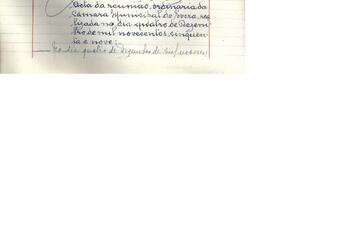 Acta da reunião ordinária da
Câmara Municipal de Évora, rea
lizada no dia quatro de Dezem
bro de mil novecentos cinquen
ta e nove:
No dia quatro de Dezembro de mil novecen